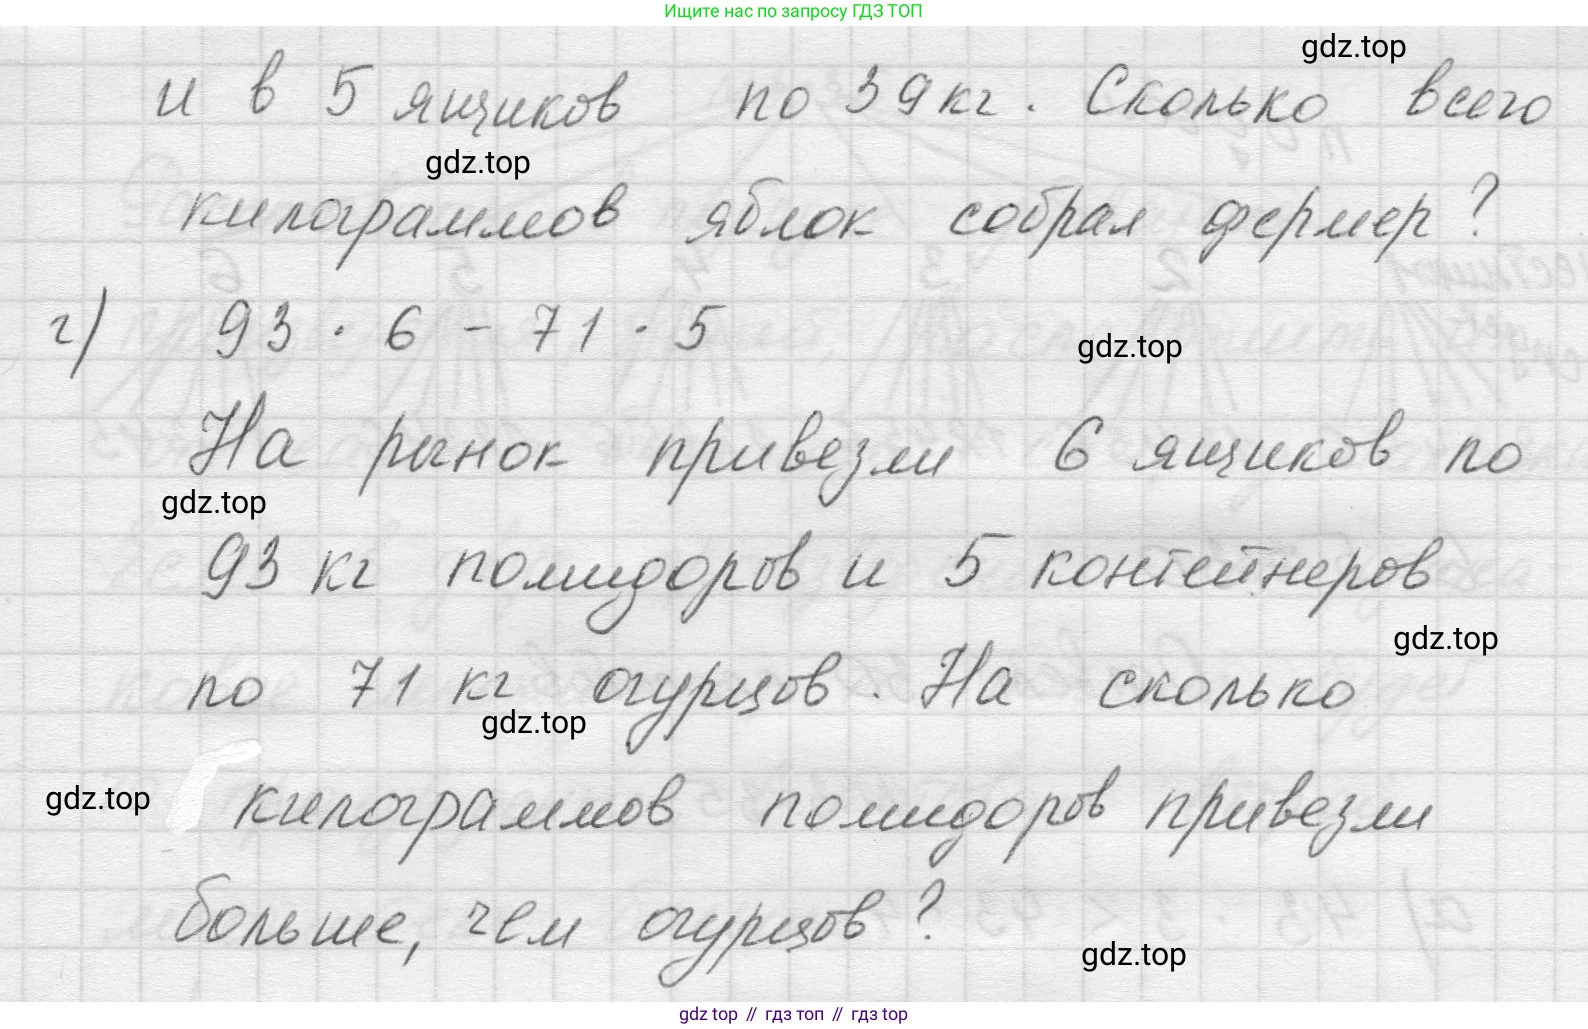 Ищите нас по запросу ГДЗ ТОП
gdz.top
и в 5 ящиков по 39 кг. Сколько всего
gdz.top
килограммов яблок собрал фермер?
г) 93 · 6 - 71 · 5
gdz.top
На рынок привезли 6 ящиков по
gdz.top
93 кг помидоров и 5 контейнеров
gdz.top
по 71 кг огурцов. На сколько
gdz.top
gdz.top
килограммов помидоров привезли
больше, чем огурцов?
gdz.top
gdz top // гдз топ // гдз top